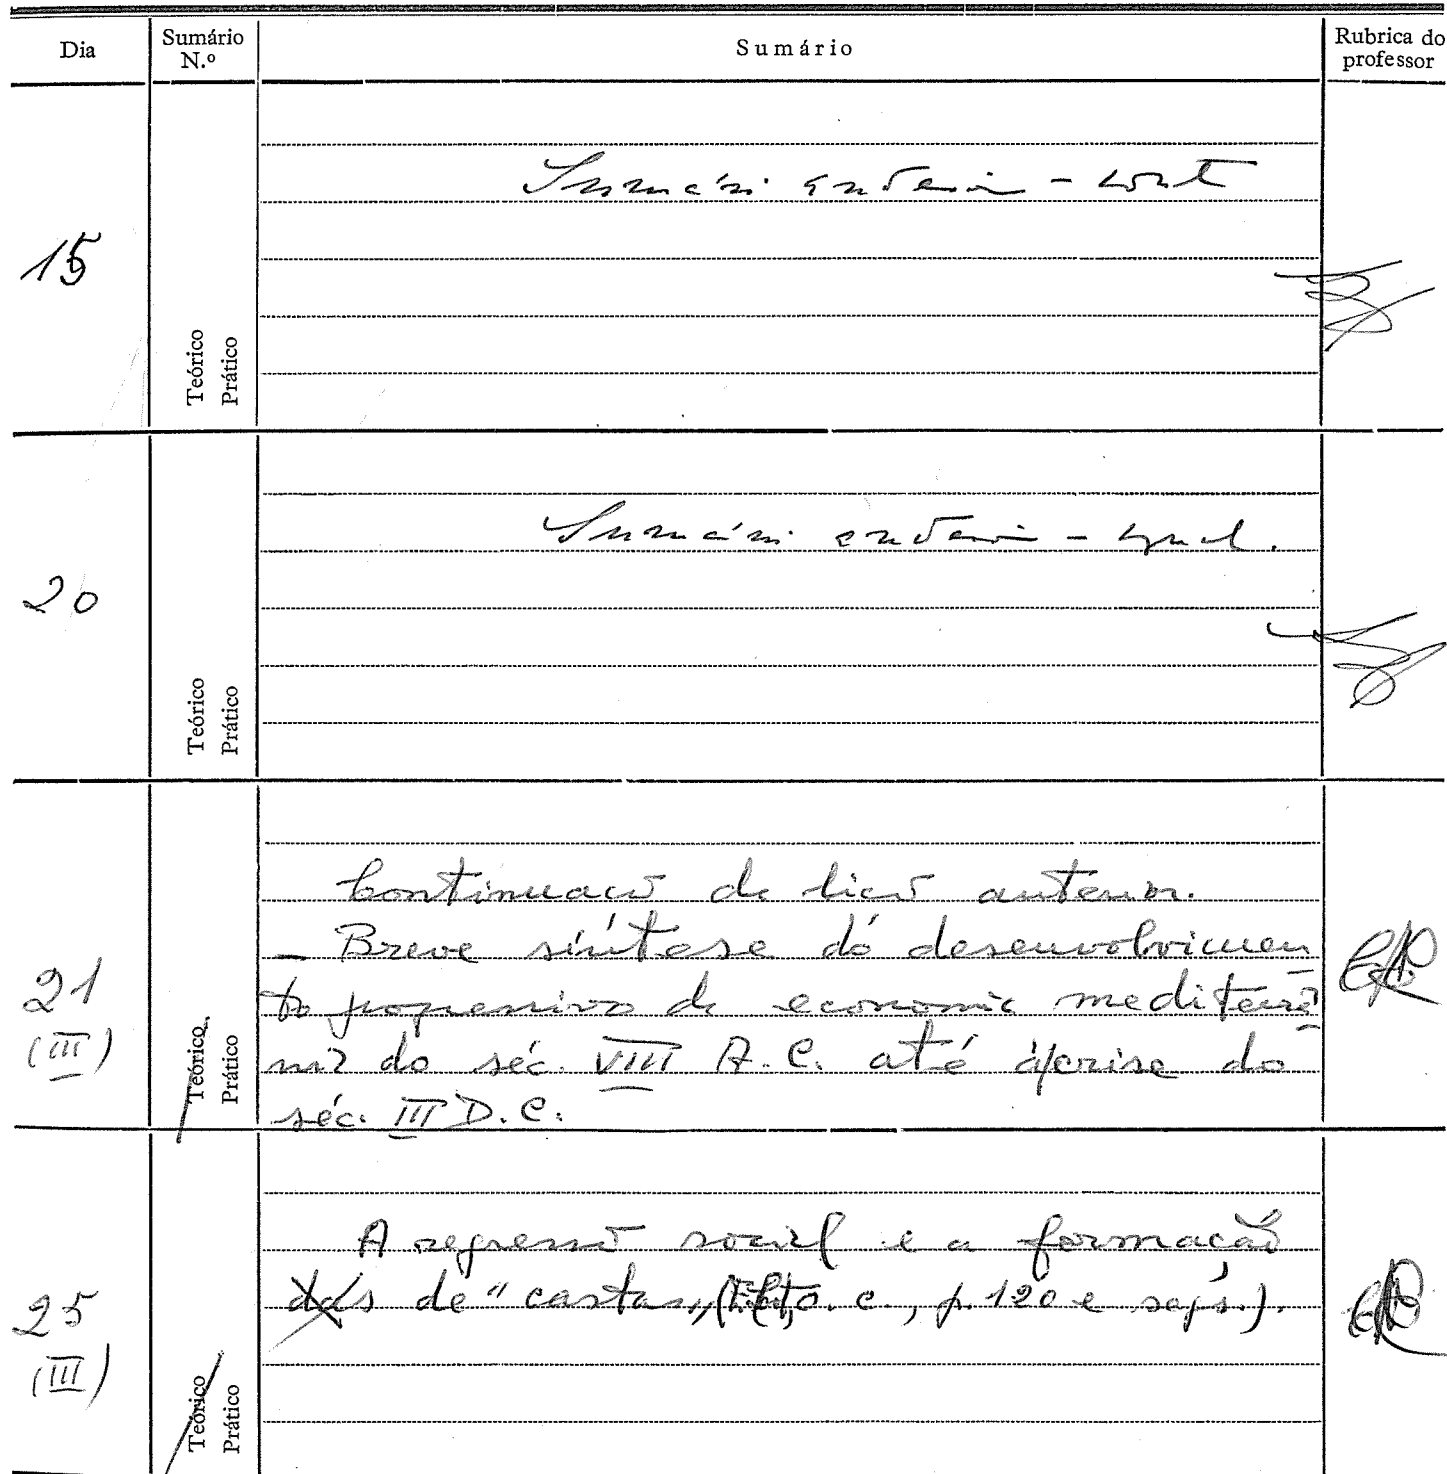 Dia
Sumário N.º
Sumário
Rubrica do professor
Sumário anterior - cont
15
Teórico
Prático
Sumário anterior - concl.
20
Teórico
Prático
Continuação da lição anterior.
- Breve síntese do desenvolvimen
to progressivo da economia mediterrâ
nea do séc. VIII A. C. até à crise do
séc. III D. C.
21
(III)
Teórico
Prático
A regressão social e a formação
de "castas" o. c., p. 120 e segs.).
25
(III)
Teórico
Prático